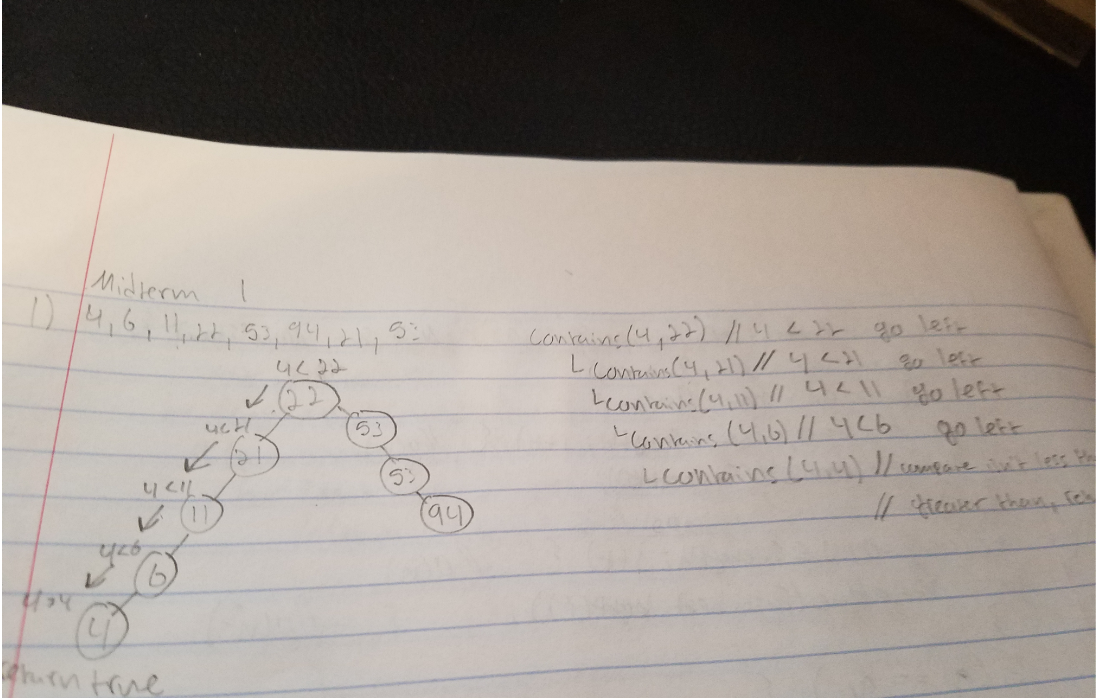 Midterm 1
1) 4, 6, 11, 22, 53, 94, 21, 53
4<22
22
53
4<21
21
53
4<11
11
94
4<6
6
4
return true
contains(4,22) // 4 < 22 go left
└contains(4,21) // 4 < 21 go left
└contains(4,11) // 4 < 11 go left
└contains(4,6) // 4<6 go left
└contains(4,4) // compare isn't less
// greater than,